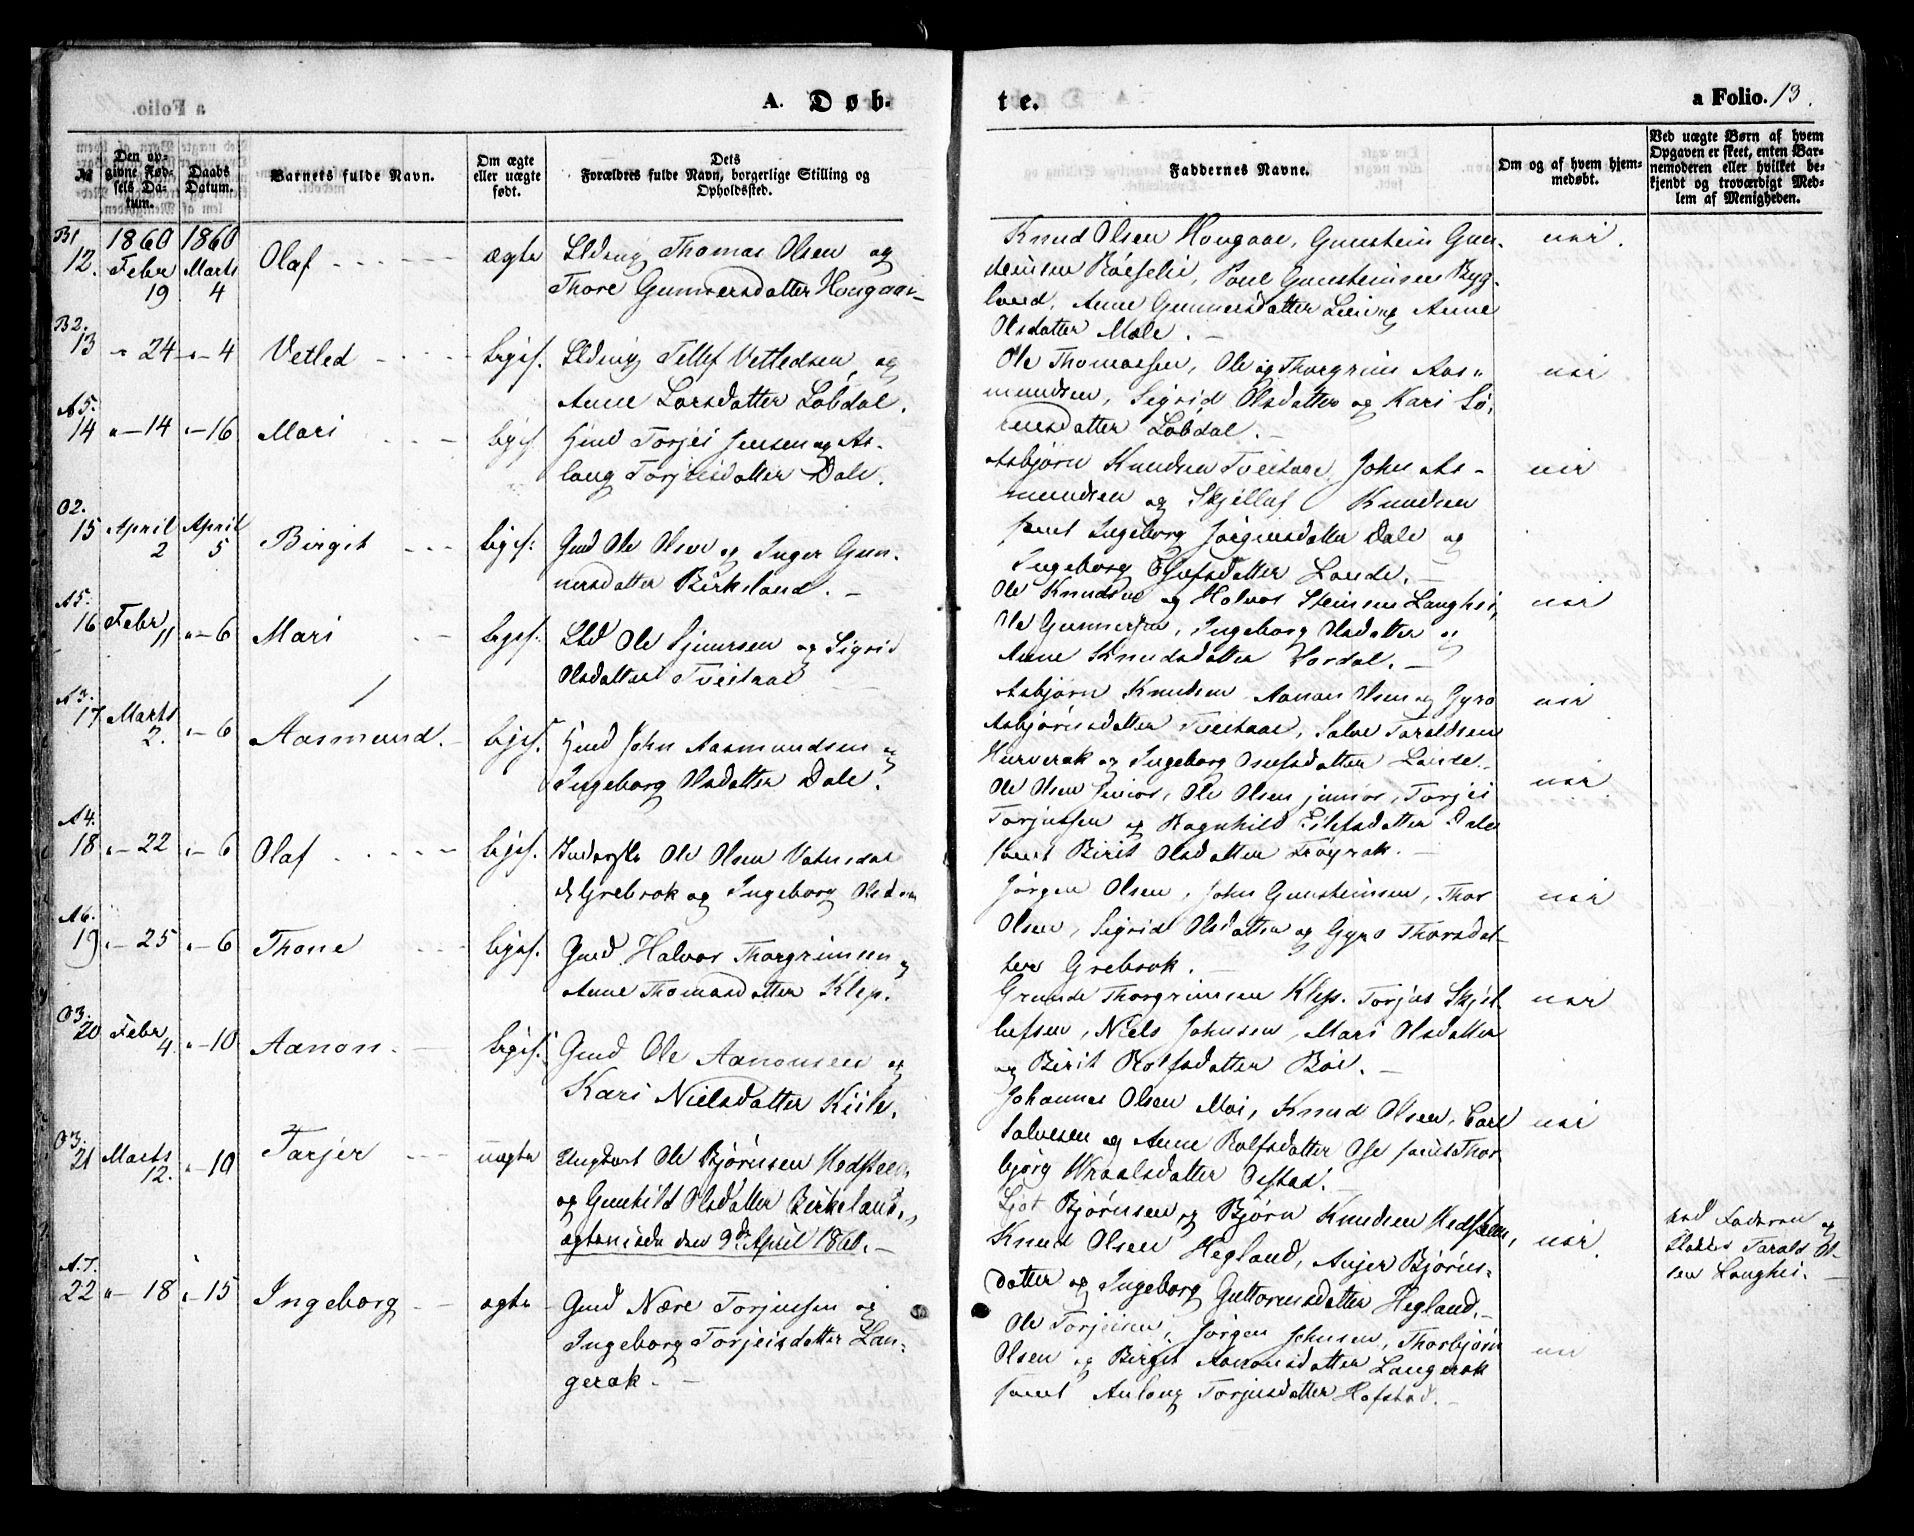 a Folio.
A. Døb-
te.
a Folio. 13.
№
Den opgivne Fødsels Datum.
Daabs Datum.
Barnets fulde Navn.
Om ægte eller uægte født.
Dets Forældres fulde Navn, borgerlige Stilling og Opholdssted.
Faddernes Navne.
Om og af hvem hjemmedøbt.
Ved uægte Børn af hvem Opgaven er skeet, enten Barnemoderen eller hvilket bekjendt og troværdigt Medlem af Menigheden.
B1 12. 1860 Febr 19 1860 Marts 4 Olaf ægte
Thomas Olsen og
Thore Gunnersdatter Hougaar
Knud Olsen Hougaae, Gunstein Gun-
steinsen Røiselie, Poul Gunsteinsen Byg-
land, Anne Gunnersdatter Lien og Anne
Olsdatter Mole.
nei.
B2. 13 24 4 Vetled
Tellef Vetledsen og
Anne Larsdatter Løbdal.
Ole Thomassen, Ole og Thorgrim Aas-
mundsen, Sigrid Olsdatter og Kari Sø-
rensdatter Løbdal.
nei
A5. 14 14 16 Mari
Torjei Jensen og As-
laug Torjeisdatter Dale.
Asbjørn Knudsen Tveitaae, John As-
mundsen og Skjellaf Knudsen
samt Ingeborg Jørgensdatter Dale og
Ingeborg Osufsdatter Lande.
nei
O2. 15 April 2 April 5 Birgit
Gmd Ole Olsen og Inger Gun-
nersdatter Birkeland.
Ole Knudsen og Halvor Steinsen Langhei,
Ole Gunnersen, Ingeborg Olsdatter og
Anne Knudsdatter Hordal.
nei
A5. 16 Febr 11 6 Mari
Ole Sjuursen og Sigrid
Olsdatter Tveitaae
Asbjørn Knudsen, Aanon Olsen og Gyro
Asbjørnsdatter Tveitaae, Salve Taraldsen
Hurverak og Ingeborg Osufsdatter Lande.
nei
A3. 17 Marts 2. 6 Aasmund.
John Aasmundsen og
Ingeborg Olsdatter Dale.
Ole Olsen senior, Ole Olsen junior, Torjei
Torjussen og Ragnhild Eilefsdatter Dale
samt Birit Olsdatter Frøyrak.
nei
A4. 18 22 6 Olaf
Ole Olsen Vatndal
Grebrok og Ingeborg Olsd
Jørgen Olsen, John Gunsteinsen, Thor
Olsen, Sigrid Olsdatter og Gyro Thorsdat-
ter Grebrok.
nei
A6. 19 25 6 Thone
Gmd Halvor Thorgrimsen og
Anne Thomasdatter Klep.
Grunde Thorgrimsen Klep. Torjus Skjel-
lefsen, Niels Johnsen, Mari Olsdatter
og Birit Rolfsdatter Bøe.
nei
O3. 20 Febr 4 10 Aanon.
Gmd Ole Aanonsen og
Kari Nielsdatter Kiile.
Johannes Olsen Moi, Knud Olsen, Carl
Salvesen og Anne Rolfsdatter Ose samt Thor-
bjørg Wraalsdatter Østad.
nei
O3. 21 Marts 12. 10 Tarjer uægte
Ungkarl Ole Bjørnsen Hedsteen,
og Gunhild Olsdatter Birkeland,
ægteviede den 9de April 1860.
Bjørnsen og Bjørn Knudsen Hedsteen,
Knud Olsen Hegland, Anjer Bjørns-
datter og Ingeborg Guttormsdatter Hegland.
nei
ved Faderen og
Tarald Ol-
sen Langhei.
A.7. 22 18 15 Ingeborg ægte
Gmd Nære Torjussen og
Ingeborg Torjeisdatter Lan-
gerak.
Ole Torjeisen, Jørgen Johnsen, Thorbjørn
Olsen og Birgit Aanonsdatter Langerak
samt Anlaug Torjusdatter Hofstad.
nei